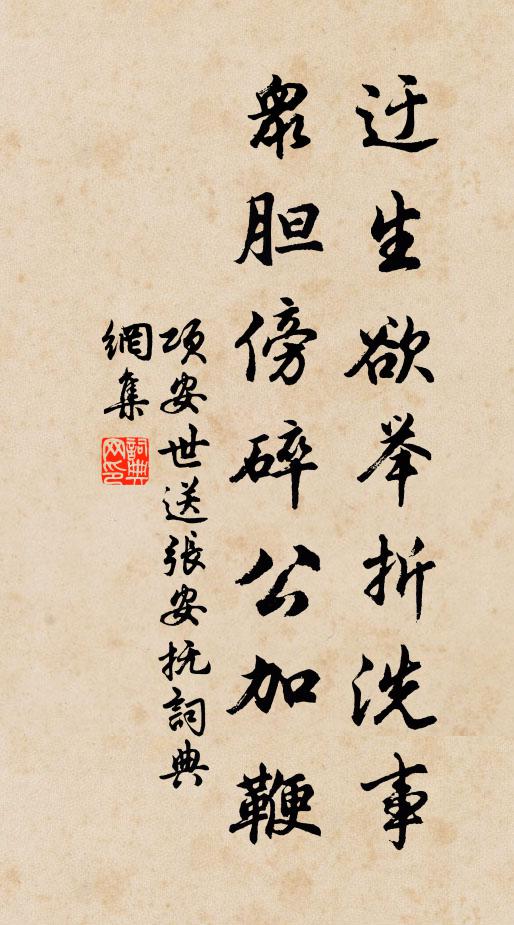 迂生欲举折洗事
众胆傍碎公加鞭
项安世送張安抚詞典
網集
詞典网印